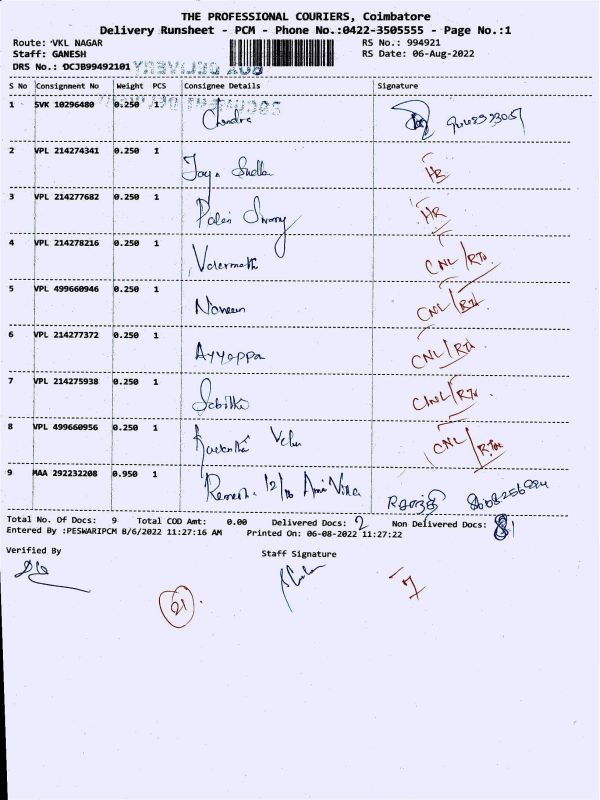 THE PROFESSIONAL COURIERS, Coimbatore
Delivery Runsheet - PCM - Phone No.:0422-3505555 - Page No.:1
Route: VKL NAGAR RS No.: 994921
Staff: GANESH RS Date: 06-Aug-2022
DRS No.: DCJB99492101
S No Consignment No Weight PCS Consignee Details Signature
1 SVK 10296480 0.250 1 Chandra
2 VPL 214274341 0.250 1 Jaya HR
3 VPL 214277682 0.250 1 HR
4 VPL 214278216 0.250 1 CNL/RTO
5 VPL 499660946 0.250 1 Naveen CNL/RTO
6 VPL 214277372 0.250 1 Ayyappa CNL/RTO
7 VPL 214275938 0.250 1 CNL/RTO
8 VPL 499660956 0.250 1 Velu CNL/RTO
9 MAA 292232208 0.950 1 Ramesh. 12/
Total No. Of Docs: 9 Total COD Amt: 0.00 Delivered Docs: 2 Non Delivered Docs:
Entered By :PESWARIPCM 8/6/2022 11:27:16 AM Printed On: 06-08-2022 11:27:22
Verified By Staff Signature
21 7